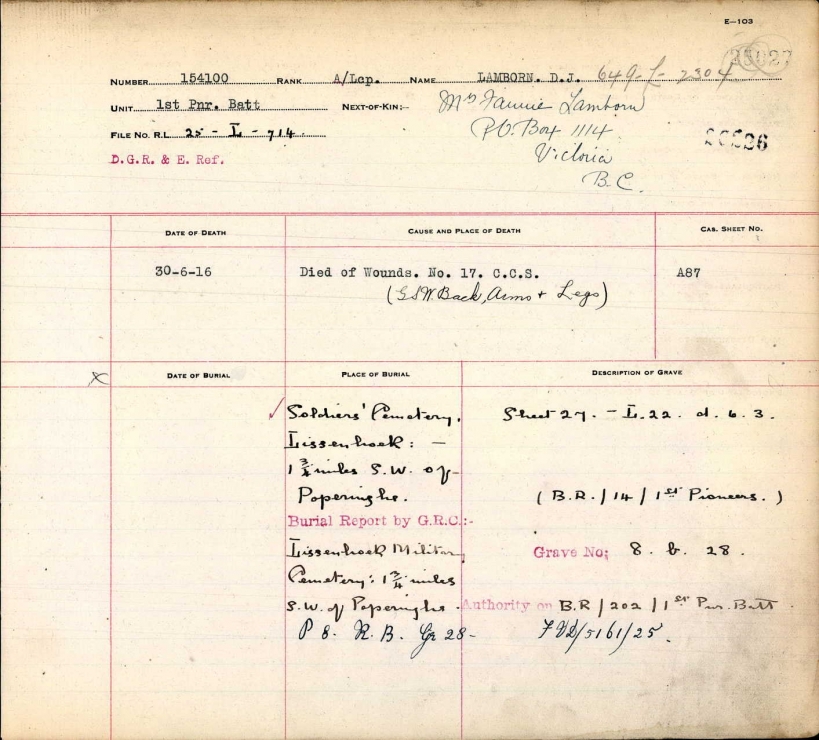 E—103
25027
NUMBER 154100 RANK A/Lcp. NAME LAMBORN. D.J. 649-L-2304
UNIT 1st Pnr. Batt NEXT-OF-KIN:- Mrs Fannie Lamborn
P.O. Box 1114
FILE NO. R.L. 25 - L - 714.
Victoria
D.G.R. & E. Ref.
B.C.
DATE OF DEATH CAUSE AND PLACE OF DEATH CAS. SHEET NO.
30-6-16 Died of Wounds. No. 17. C.C.S. A87
(GSW. Back, Arms + Legs)
x DATE OF BURIAL PLACE OF BURIAL DESCRIPTION OF GRAVE
✓ Soldiers' Cemetery, Sheet 27. - L. 22. d. 6. 3.
Lissenhoek: -
1 3/4 miles S.W. of
Poperinghe. (B.R./14/1st Pioneers.)
Burial Report by G.R.C.:-
Lissenhoek Military Grave No; 8. b. 28.
Cemetery: 1 3/4 miles
S.W. of Poperinghe. Authority on B.R/202/1st Pnr. Batt.
P 8. R. B. Gr 28-